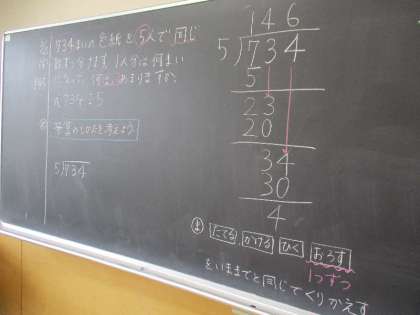 734まいの色紙を5人で同じ
数ずつ分けます。1人分は何まい
になって、何まいあまりますか。
式 734÷5
筆算のしかたを考えよう
5)734
146
5)734
5
23
20
34
30
4
ま たてる かける ひく おろす
1つずつ
をいままでと同じでくりかえす